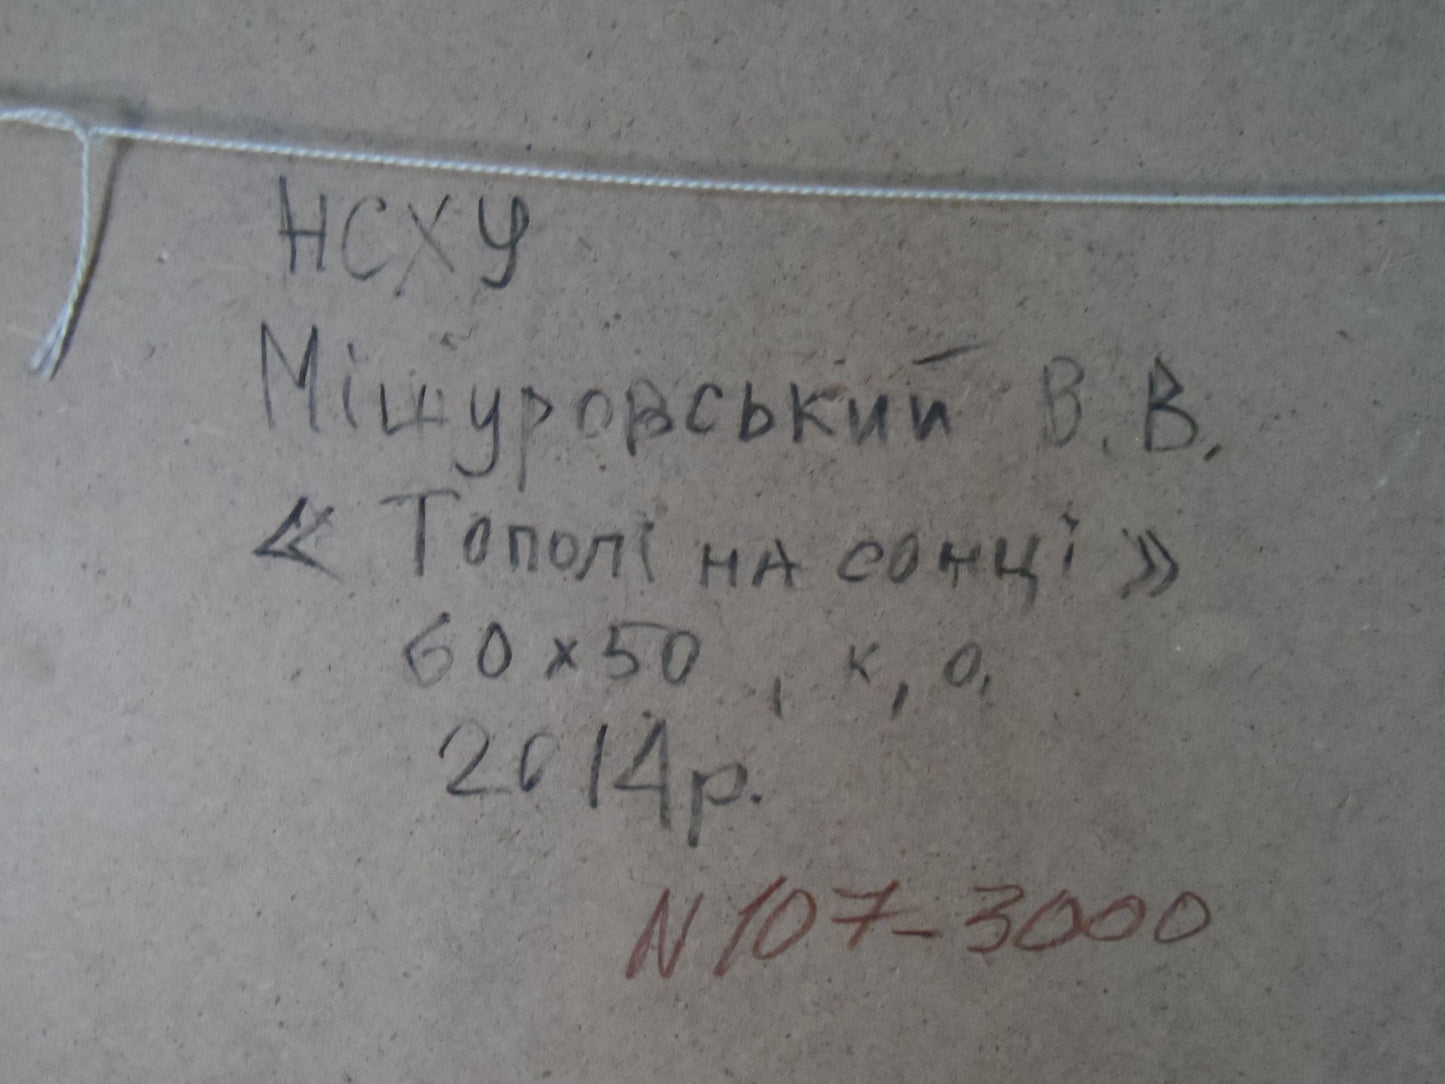 НСХУ
Мішуровський В. В.
« Тополі на сонці »
60х50, к, о,
2014р.
N 107-3000